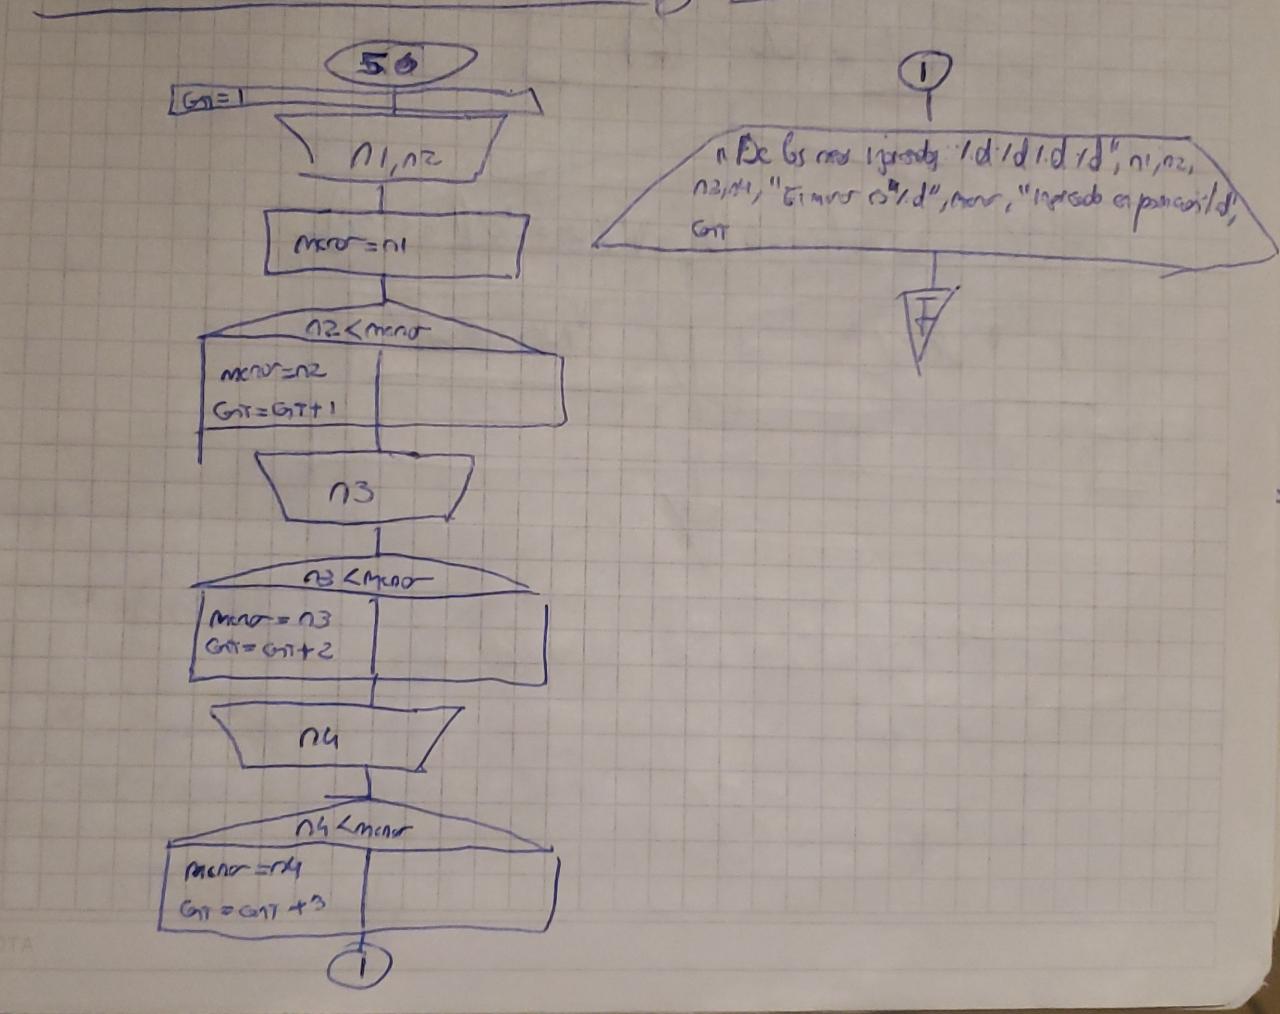 56
Cnt=1
n1,n2
menor=n1
n2<menor
menor=n2
Cnt=Cnt+1
n3
n3<menor
menor=n3
Cnt=Cnt+2
n4
n4<menor
menor=n4
Cnt=Cnt+3
1
1
"De los nros %d %d %d %d", n1,n2,
n3,n4, "El menor es %d", menor, "Ingresado en posicion %d",
Cnt
F